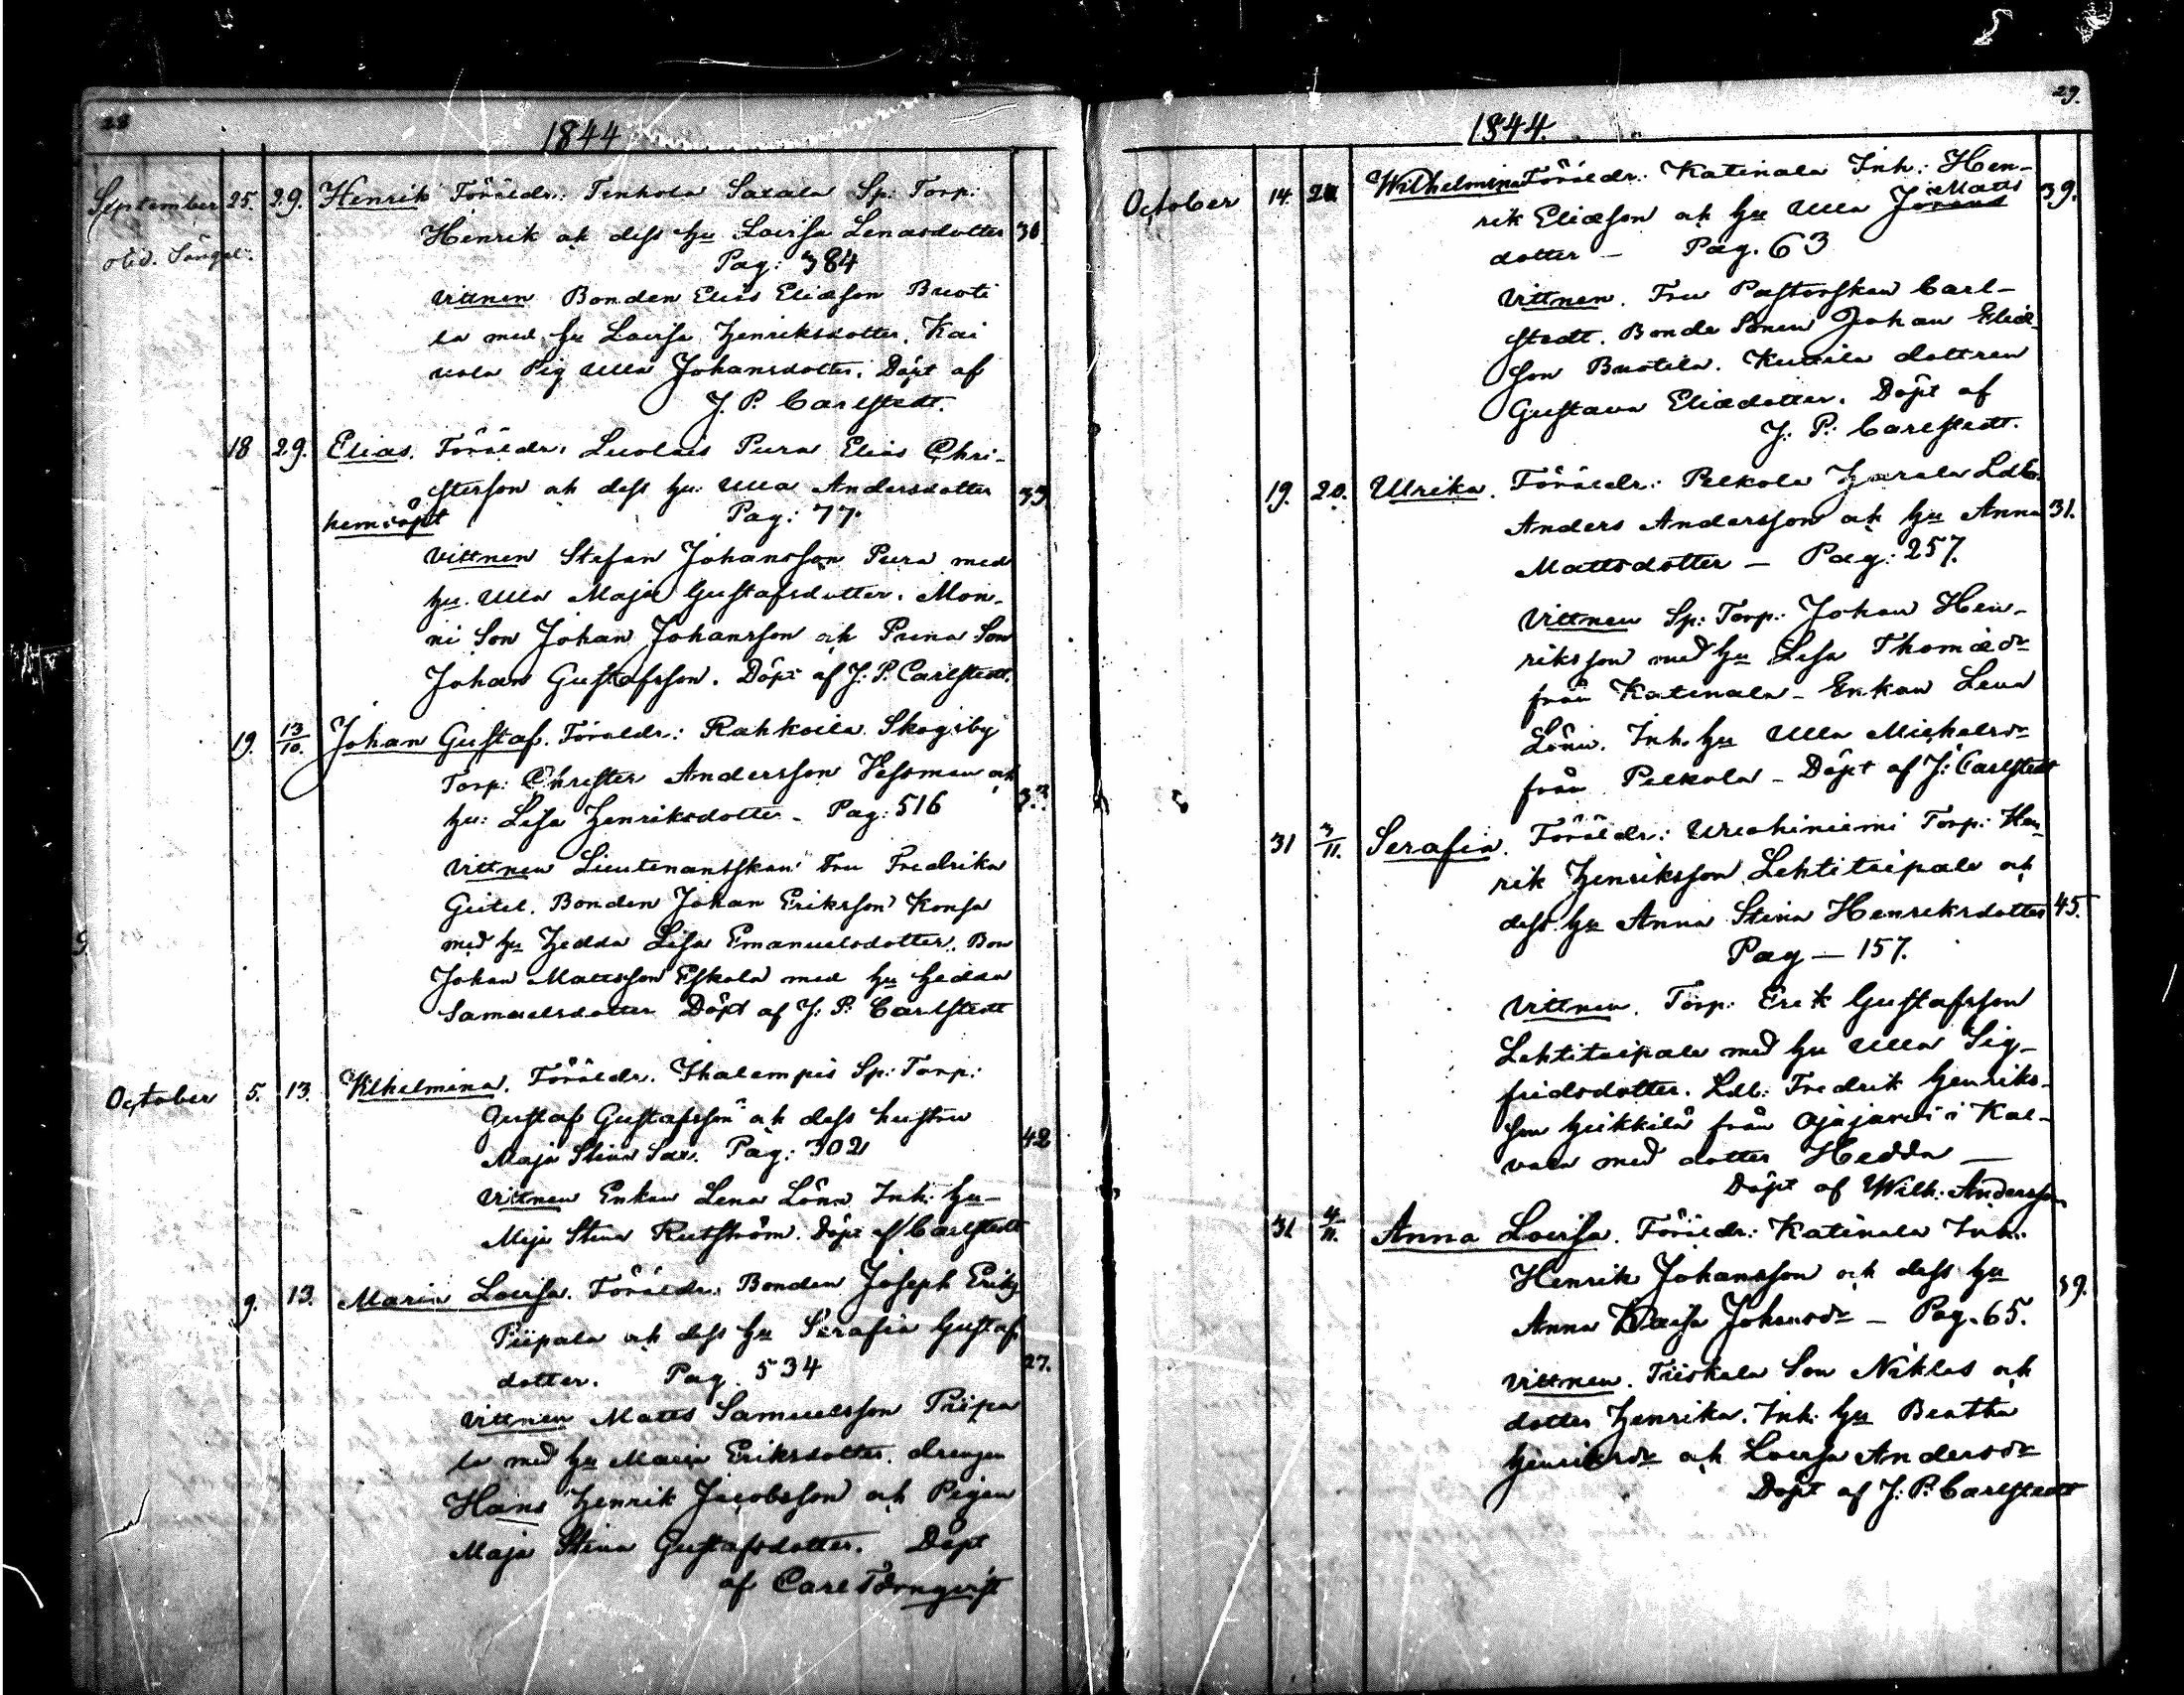 28
1844
September 25. 29. Henrik Föräldr: Tenhola Saxala Sp: Torp:
Henrik och dess hu Loviisa Lenasdotter 30
Pag: 384
Vittnen Bonden Elias Eliæson Buoti
la med hu Lovisa Henriksdotter. Kai
vola Pig Ulla Johansdotter. Döpt af
J. P. Carlstedt.
18 29. Elias. Föräldr: Luolais Pura Elias Chri-
sterson och dess hu: Ulla Andersdotter 33
hemdöpt Pag: 77.
Vittnen Stefan Johansson Pura med
hu. Ulla Maja Gustafsdotter. Mon-
ni Son Johan Johansson och Son
Johan Gustafsson. Döpt af J. P. Carlstedt.
19. 13/10. Johan Gustaf. Föräldr: Rahkoila Skogsby
Torp: Christer Andersson Hessman och
hu: Lisa Henriksdotter - Pag: 516 33.
Vittnen Lieutenantskan Fru Fredrika
Geitel. Bonden Johan Eriksson Konsa
med hu Hedda Lisa Emanuelsdotter. Bon
Johan Mattsson Eskola med hu Hedda
Samuelsdotter Döpt af J. P. Carlstedt
October 5. 13. Vilhelmina. Föräldr. Ihalempis Sp: Torp:
Gustaf Gustafsson och dess hustru
Maja Stina Sax. Pag: 302 42
Vittnen Enkan Lena Lönn. Inh: hu
Maja Stina Rutström. Döpt af Carlstedt
9. 13. Maria Lovisa. Föräldr: Bonden Joseph Eriks
Piipala och dess hu Serafia Gustaf
dotter. Pag. 534 27.
Vittnen Matts Samuelsson Piipa
la med hu Maria Eriksdotter. drengen
Hans Henrik Jacobsson och Pigan
Maja Stina Gustafsdotter. Döpt
af Carl Törnqvist
29.
1844.
October 14. 20. Wilhelmina Föräldr: Katinala Inh: Hen-
Matts
rik Eliæson och hu Ulla Johans 39.
dotter - Pag. 63
Vittnen. Fru Pastorskan Carl-
stedt. Bonde Sonen Johan Eliæ-
son Buotila. Kuttila dottren
Gustava Eliædotter. Döpt af
J: P: Carlstedt.
19. 20. Ulrika. Föräldr: Pelkola Harala Ldb.
Anders Andersson och hu Anna 31.
Mattsdotter - Pag: 257.
Vittnen Sp: Torp: Johan Hen-
riksson med hu Lisa Thomædr
från Katinala - Enkan Lena
Lönn. Inh. hu Ulla Michelsdr
från Pelkola - Döpt af J: Carlstedt
31 3/11. Serafia. Föräldr: Uskiniemi Torp: Hen
rik Henriksson Lehtitaipale och
dess hu Anna Stina Henriksdotter 45.
Pag - 157.
Vittnen. Torp: Erik Gustafsson
Lehtitaipale med hu Ulla Sig-
fridsdotter. Ldb: Fredrik Henriks-
son Heikkilä från Ojajärvi i Kal-
vola med dotter Hedda -
Döpt af Wilh: Andersson
31 4/11. Anna Lovisa. Föräldr: Katinala Inh:
Henrik Johansson och dess hu
Anna Johansdr - Pag. 65. 39.
Vittnen. Tiiskala Son Niklas och
dotter Henrika. Inh: hu Beatha
Henriksdr och Lovisa Andersdr
Döpt af J: P: Carlstedt